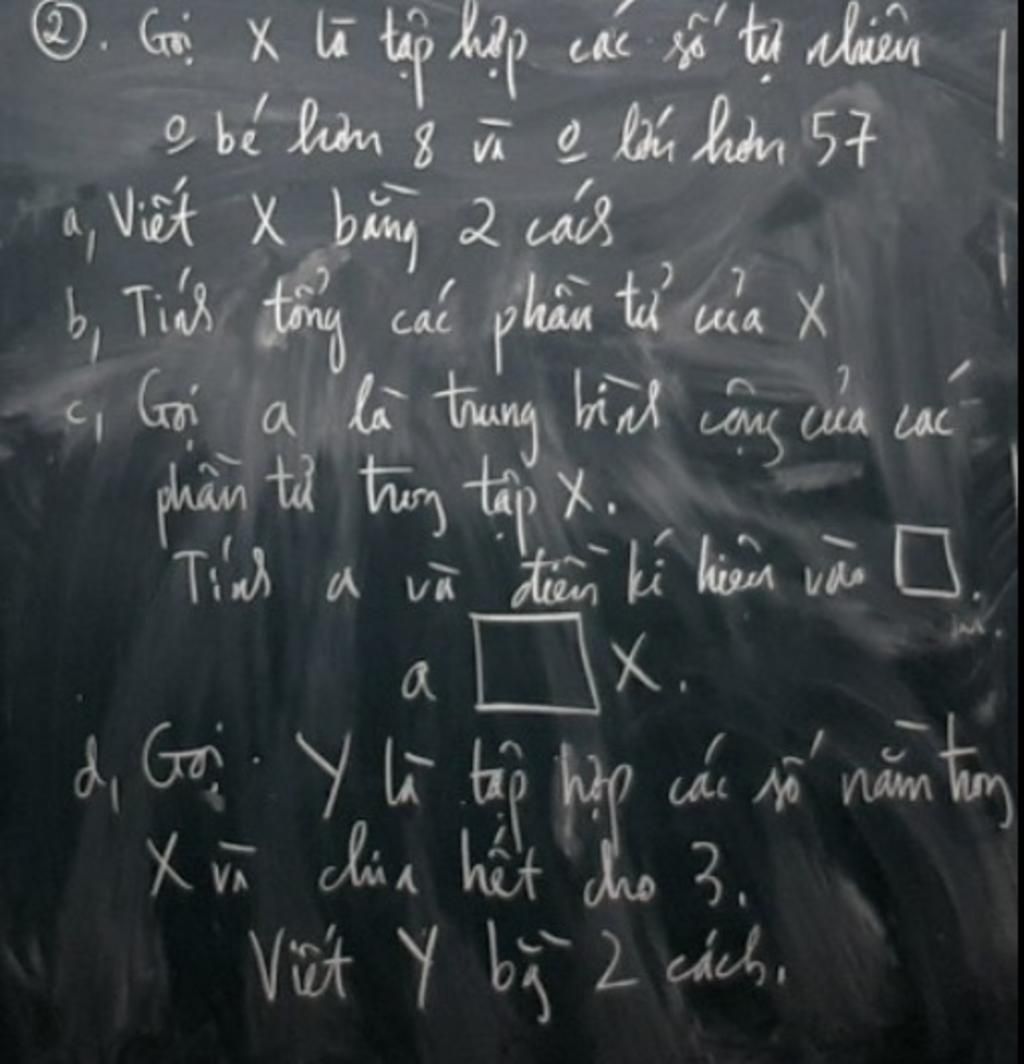 ②. Gọi X là tập hợp các số tự nhiên
o bé hơn 8 và o lớn hơn 57
a, Viết X bằng 2 cách
b, Tính tổng các phần tử của X
c, Gọi a là trung bình cộng của các
phần tử trong tập X.
Tính a và điền kí hiệu vào □.
a □ X.
d, Gọi Y là tập hợp các số nằm trong
X và chia hết cho 3.
Viết Y bằg 2 cách.